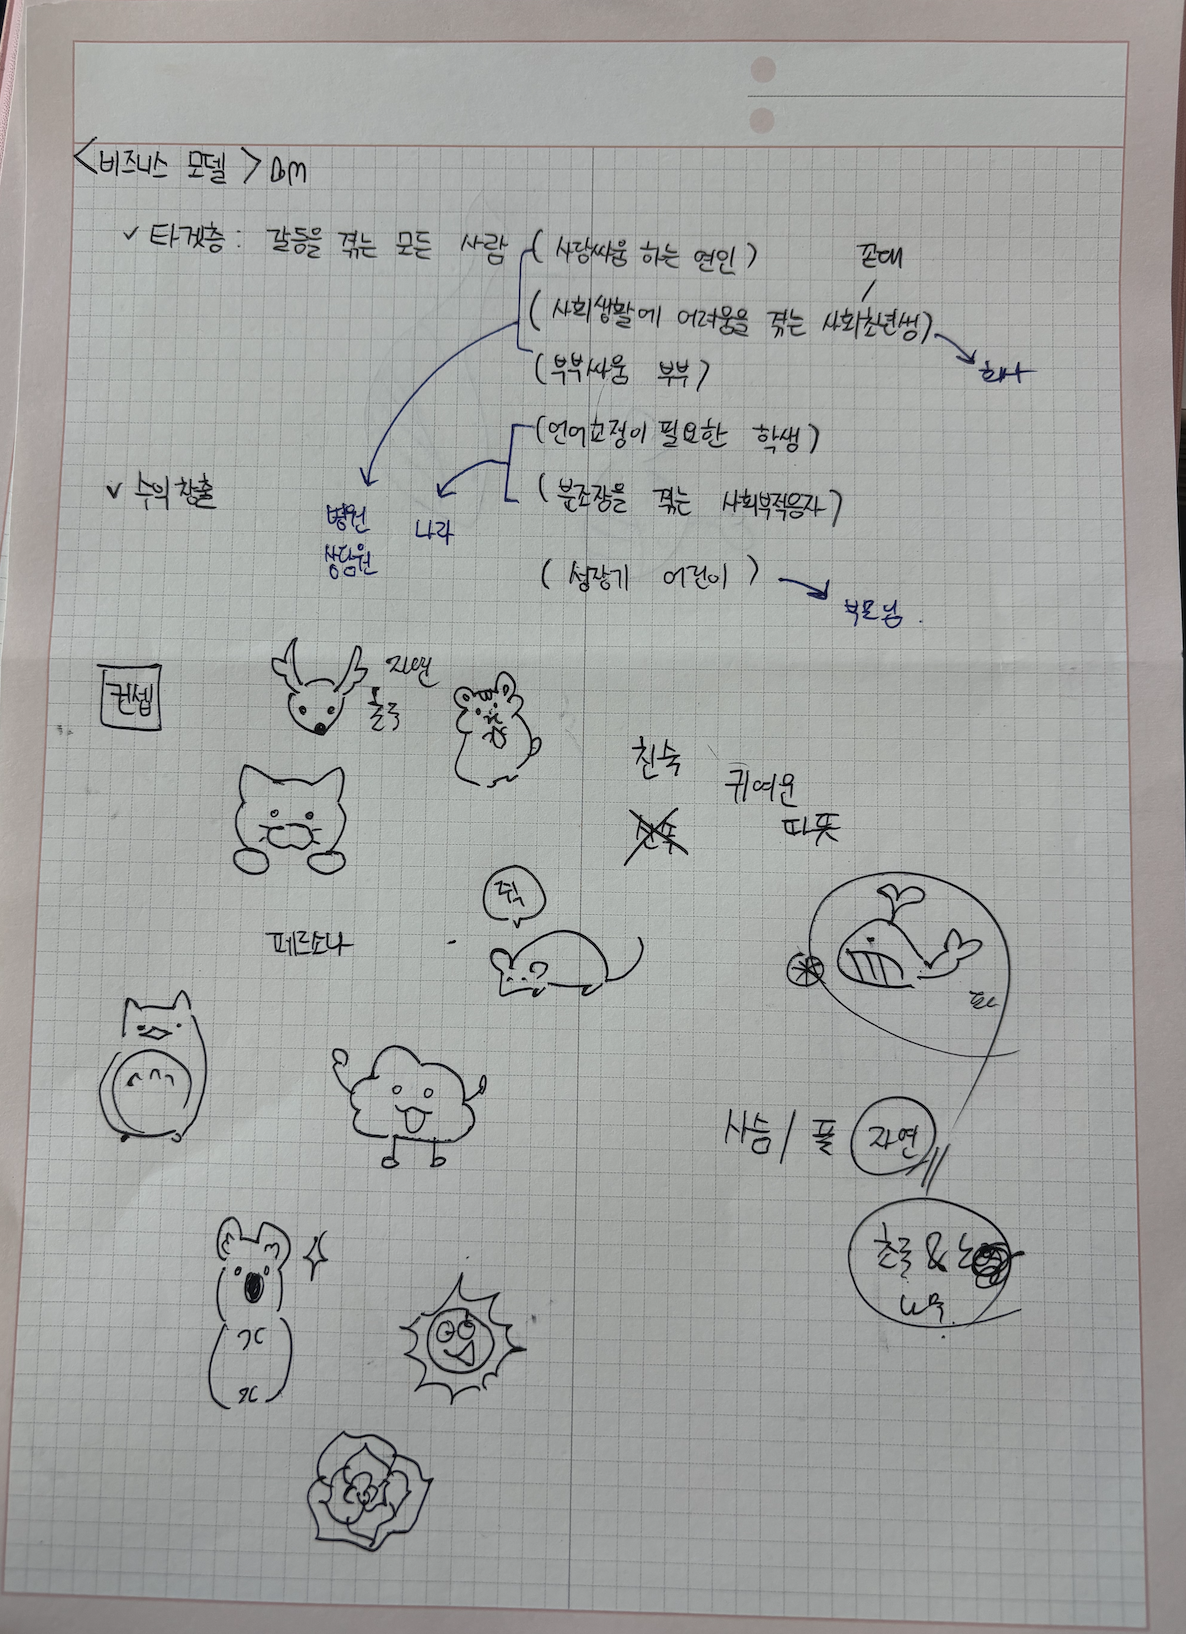 <비즈니스 모델> BM
✓ 타겟층 : 갈등을 겪는 모든 사람 ( 사랑싸움 하는 연인 )
꼰대
( 사회생활에 어려움을 겪는 사회초년생 )
회사
( 부부싸움 부부 )
( 언어교정이 필요한 학생 )
✓ 수익창출
( 분조장을 겪는 사회부적응자 )
병원
상담원
나라
( 성장기 어린이 )
부모님
컨셉
자연
초록
친숙
귀여운
따뜻
쥐
페르소나
사슴 / 풀 자연
초록 &